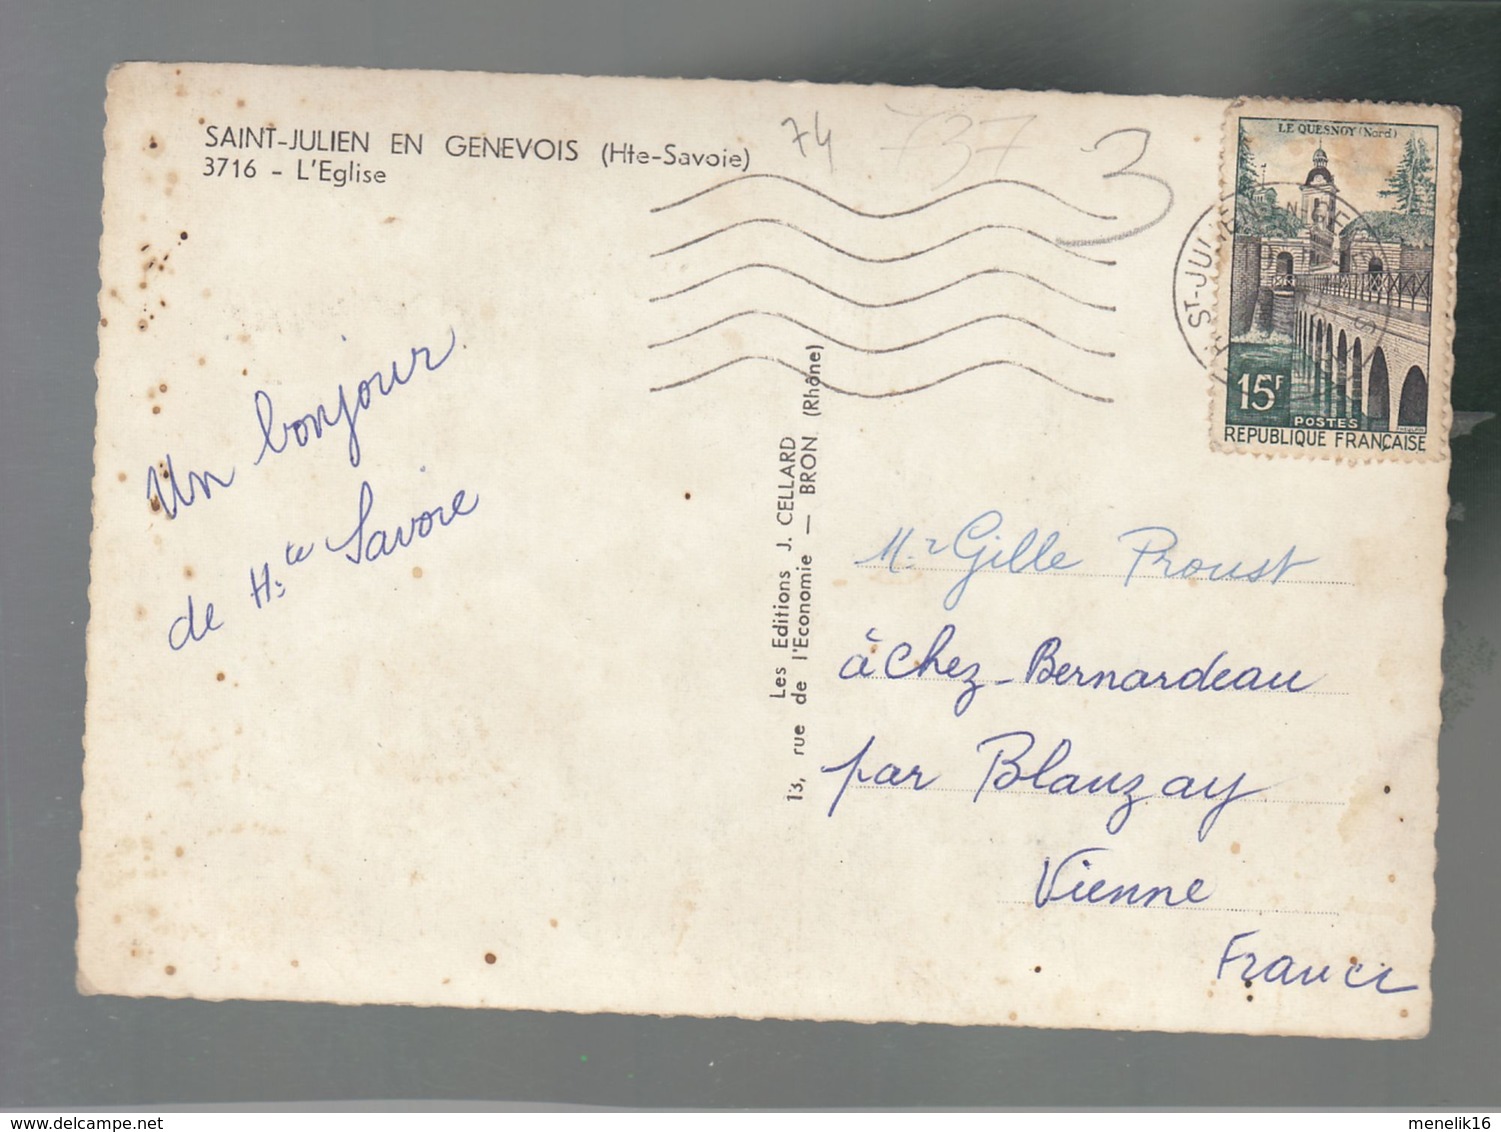 SAINT-JULIEN EN GENEVOIS (Hte-Savoie)
3716 - L'Eglise
74
737
3
LE QUESNOY (Nord)
ST-JULIEN-EN-GENE
15F
POSTES
REPUBLIQUE FRANÇAISE
Un bonjour
de Hte Savoie
Les Editions J. CELLARD
13, rue de l'Economie — BRON (Rhône)
Mr Gille Proust
à Chez-Bernardeau
par Blauzay
Vienne
France
delcampe.net
menelik16